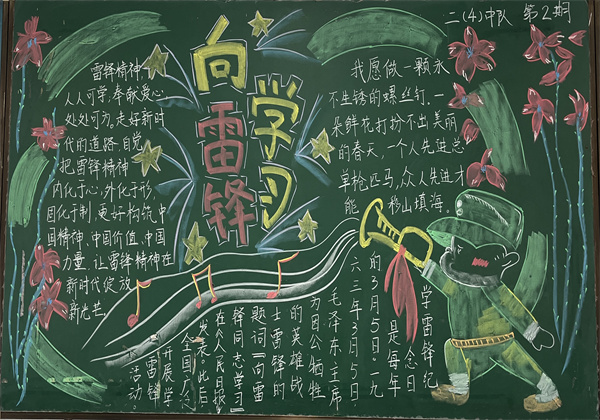 二(4)中队 第2期
向雷锋
学习
雷锋精神,
人人可学,奉献爱心,
处处可为。走好新时
代的道路,自觉
把雷锋精神
内化于心,外化于形,
固化于制,更好构筑中
国精神、中国价值、中国
力量,让雷锋精神在
新时代绽放
新光芒。
我愿做一颗永
不生锈的螺丝钉。一
朵鲜花打扮不出美丽
的春天,一个人先进总
单枪匹马,众人先进才
能移山填海。
学雷锋纪
念日
是每年
的3月5日。一九
六三年3月5日
毛泽东主席
为因公牺牲
的英雄战
士雷锋的
题词“向雷
锋同志学习”
在《人民日报》
发表。此后
全国广泛
开展学
雷锋
活动。